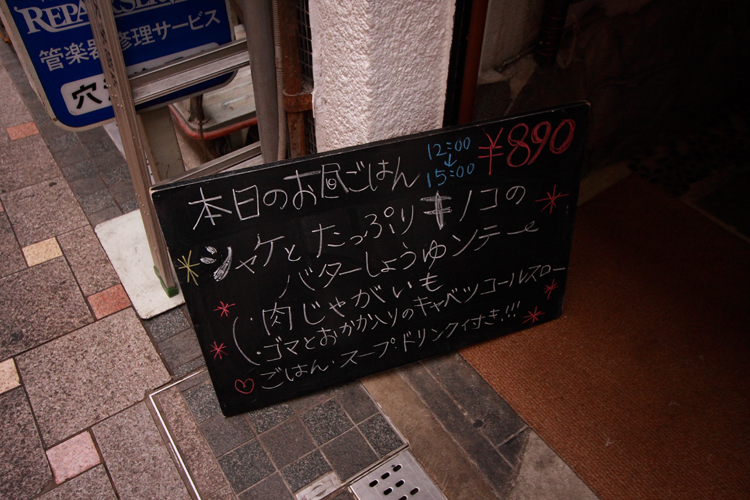 REPAIR SER
管楽器修理サービス
穴
本日のお昼ごはん
12:00
↓
15:00
¥890
シャケとたっぷりキノコの
バターしょうゆソテー
・肉じゃがいも
・ゴマとおかか入りのキャベツコールスロー
ごはん・スープ・ドリンク付き!!!